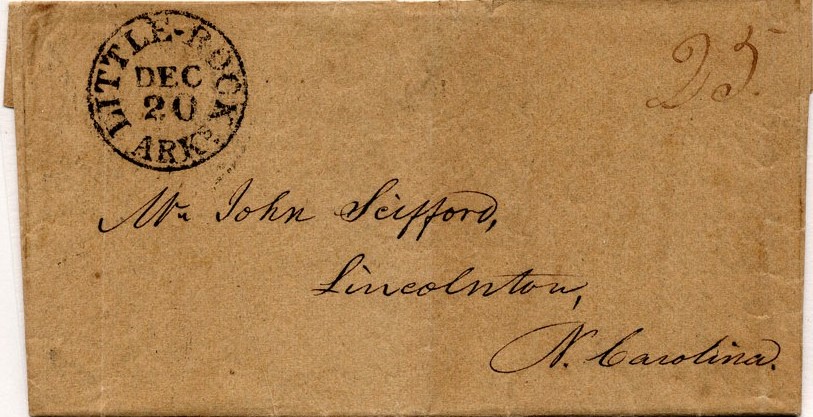 LITTLE-ROCK
DEC
20
ARKS.
25.
Mr. John Seifford,
Lincolnton,
N. Carolina.